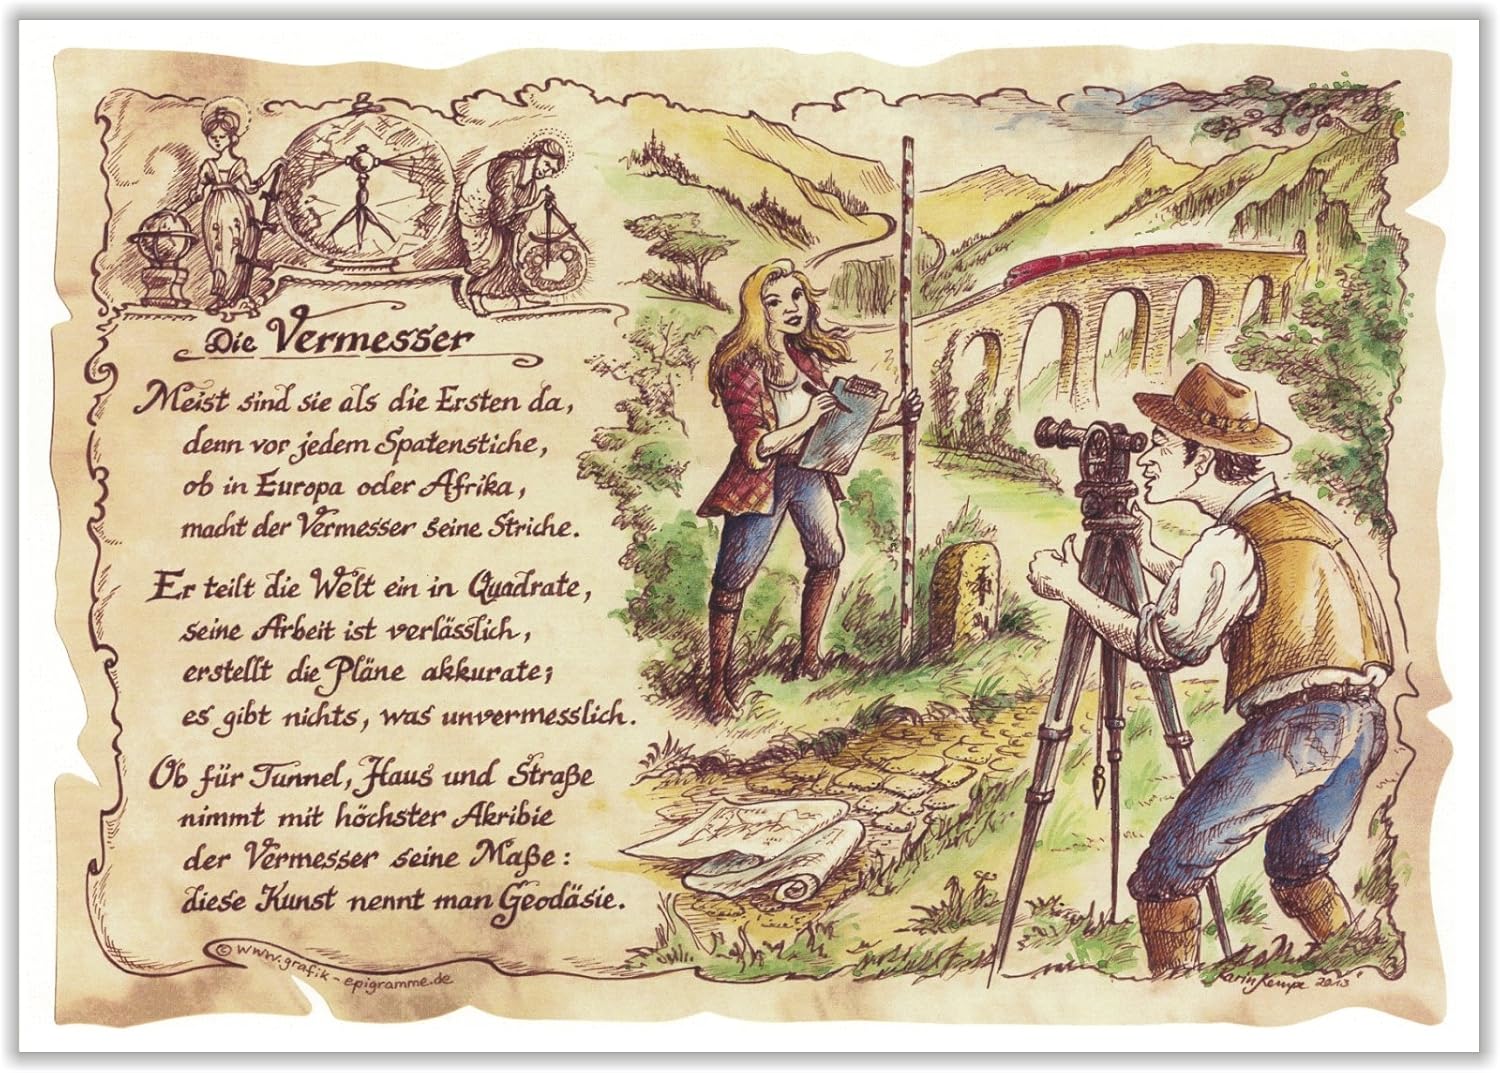 Die Vermesser
Meist sind sie als die Ersten da,
denn vor jedem Spatenstiche,
ob in Europa oder Afrika,
macht der Vermesser seine Striche.
Er teilt die Welt ein in Quadrate,
seine Arbeit ist verlässlich,
erstellt die Pläne akkurate;
es gibt nichts, was unvermesslich.
Ob für Tunnel, Haus und Straße
nimmt mit höchster Akribie
der Vermesser seine Maße:
diese Kunst nennt man Geodäsie.
© www.grafik-epigramme.de
Karin Kempe 2013